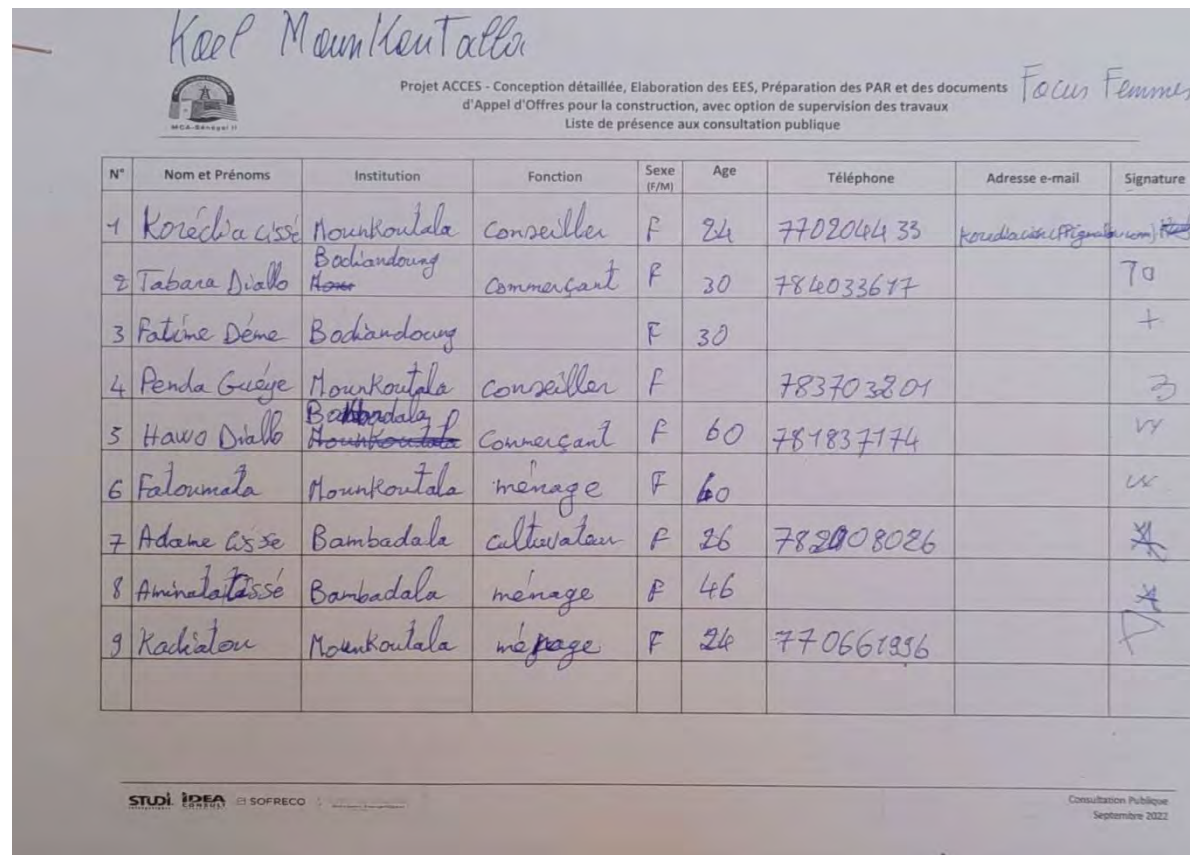 Kael MounKouTalla
Focus Femmes
MCA-Sénégal II
Projet ACCES - Conception détaillée, Elaboration des EES, Préparation des PAR et des documents
d'Appel d'Offres pour la construction, avec option de supervision des travaux
Liste de présence aux consultation publique
N° Nom et Prénoms Institution Fonction Sexe (F/M) Age Téléphone Adresse e-mail Signature
1 Korédia cissé Mounkoutala Conseiller F 24 770204433
2 Tabara Diallo Bodiandoung Commerçant F 30 784033617 TD
3 Fatime Déme Bodiandoung F 30 +
4 Penda Guéye Mounkoutala conseiller F 783703801
5 Hawo Diallo Bambadala Commerçant F 60 781837174
6 Fatoumata Mounkoutala ménage F 60
7 Adame Cisse Bambadala cultivateur F 26
8 Aminata Cissé Bambadala ménage F 46
9 Kadiatou Mounkoutala ménage F 24 770661996
STUDI IDEA CONSULT SOFRECO
Consultation Publique
Septembre 2022